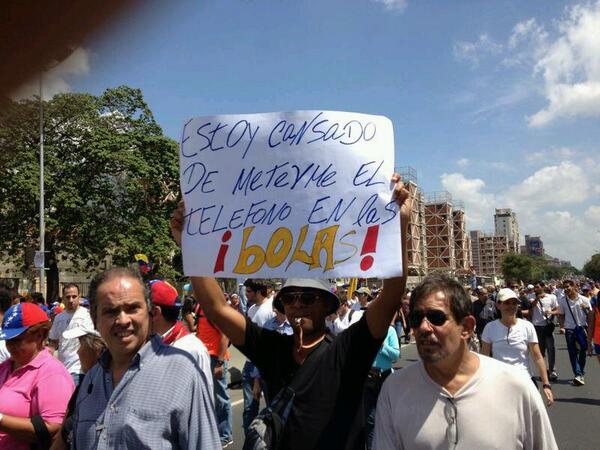 ESTOY CANSADO
DE METERME EL
TELEFONO EN LAS
¡BOLAS!